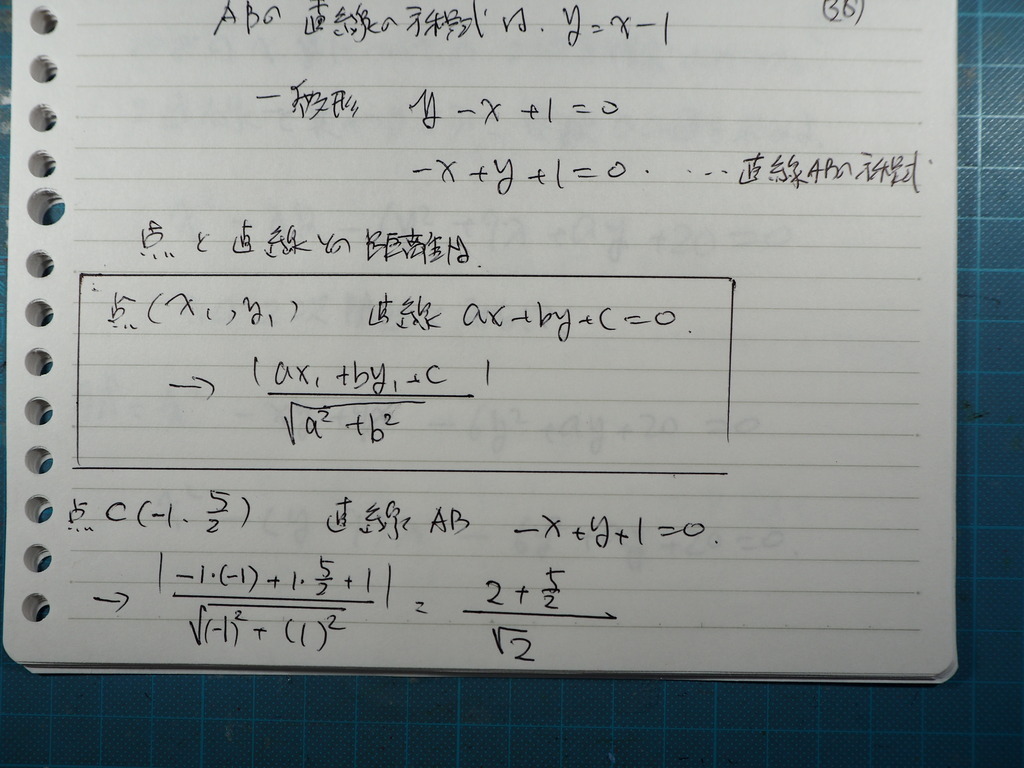 (36)
ABの直線の方程式は、y=x-1
一般形 y-x+1=0
-x+y+1=0. …直線ABの方程式.
点と直線との距離は.
点(x₁,y₁) 直線 ax+by+c=0.
→ |ax₁+by₁+c| / √(a²+b²)
点C(-1.5/2) 直線AB -x+y+1=0.
→ |-1・(-1)+1・5/2+1| / √((-1)²+(1)²) = (2+5/2) / √2